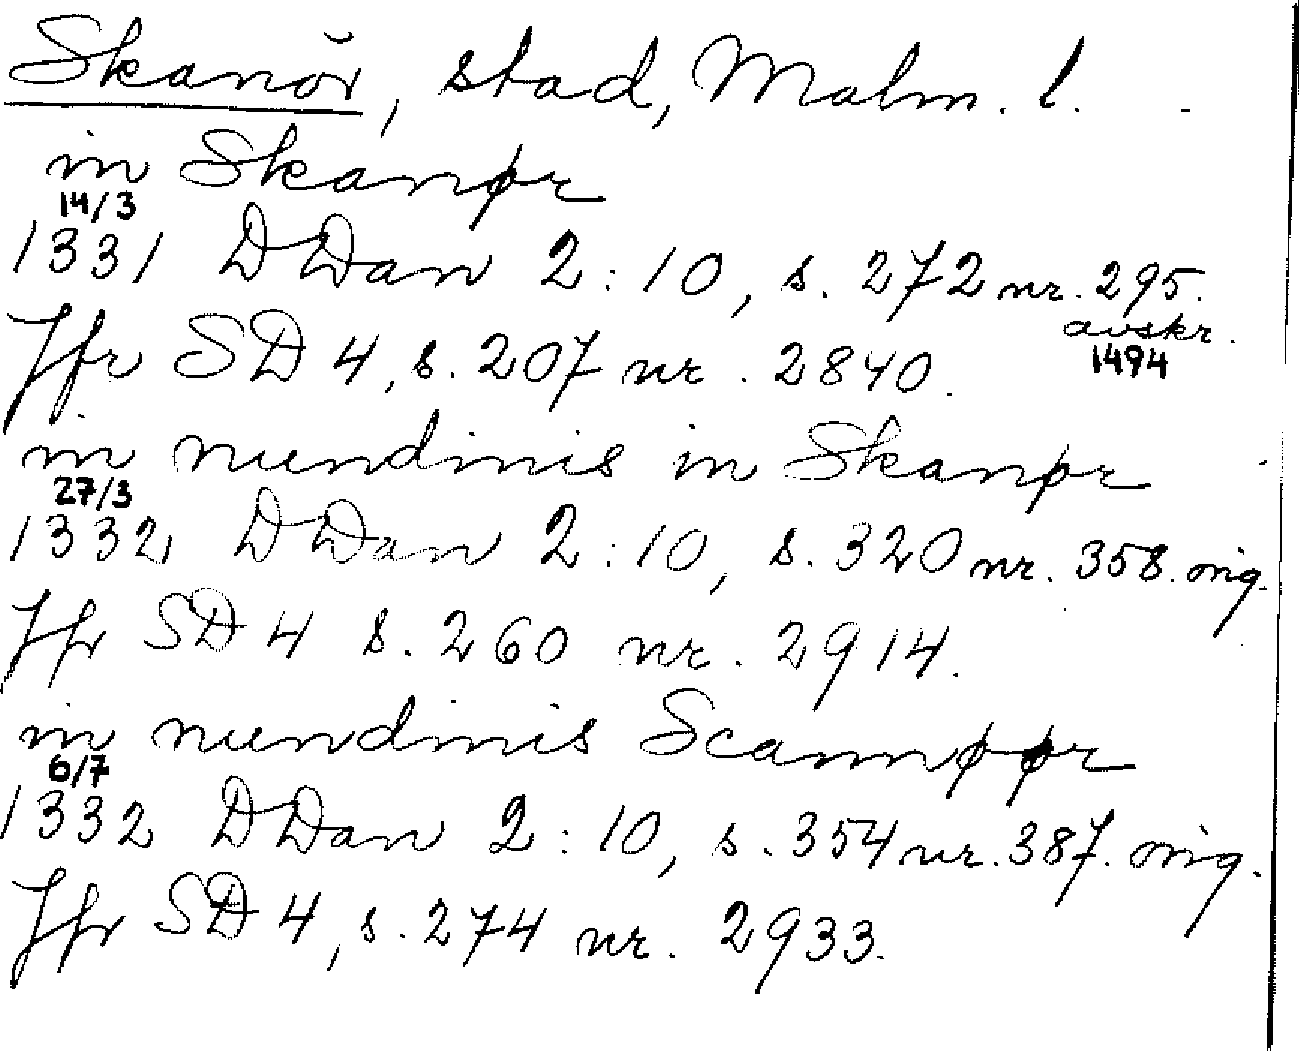 Skanör, stad, Malm. l.
in Skanør
14/3
1331 DDan 2:10, s. 272 nr. 295.
avskr.
1494
Jfr SD 4, s. 207 nr. 2840.
in nundinis in Skanør
27/3
1332 DDan 2:10, s. 320 nr. 358. orig.
Jfr SD 4 s. 260 nr. 2914.
in nundinis Scannøør
6/7
1332 DDan 2:10, s. 354 nr. 387. orig.
Jfr SD 4, s. 274 nr. 2933.